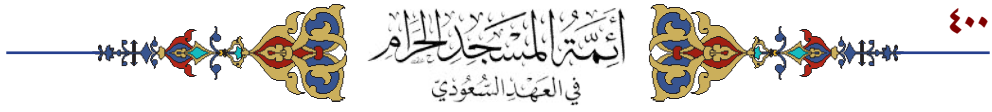 ٤٠٠
أَئِمَّةُ المَسْجِدِ الحَرَامِ
في العَهْدِ السُّعُوديّ